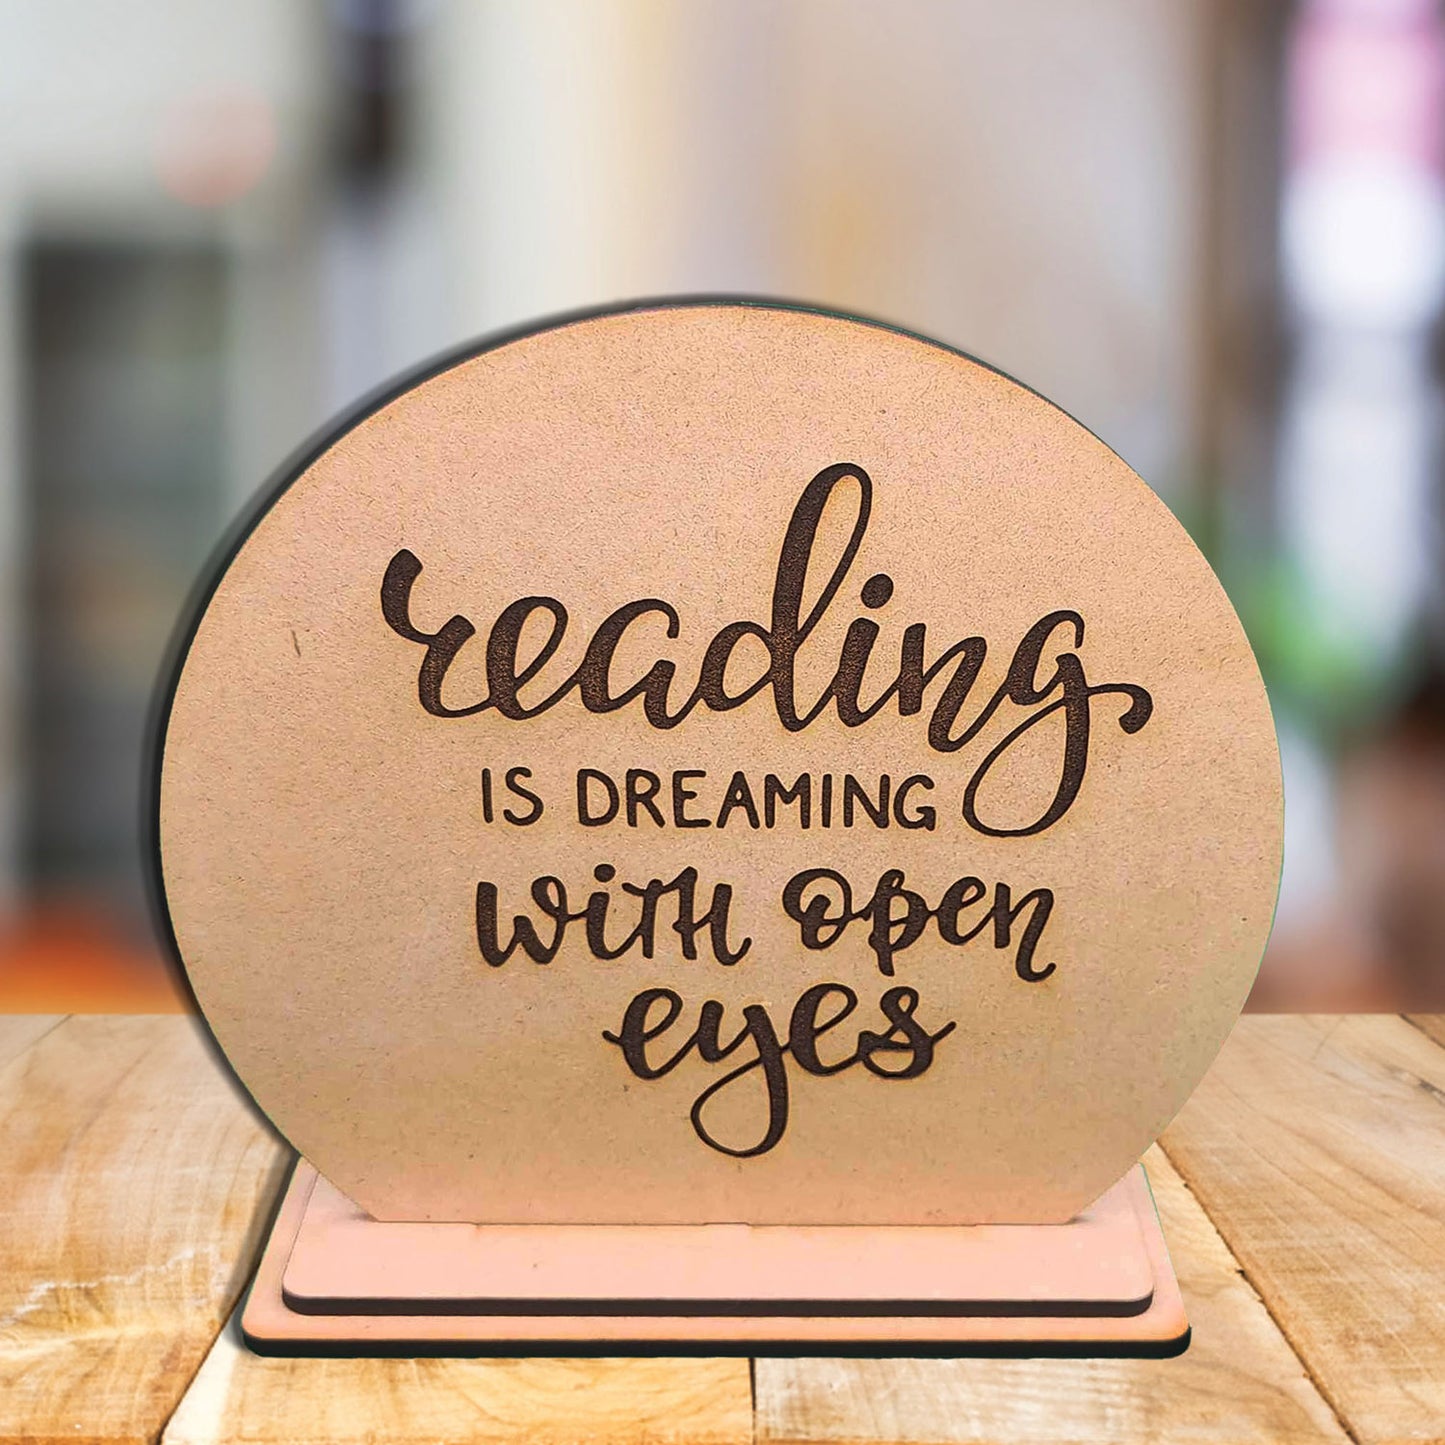 reading
IS DREAMING
with open
eyes